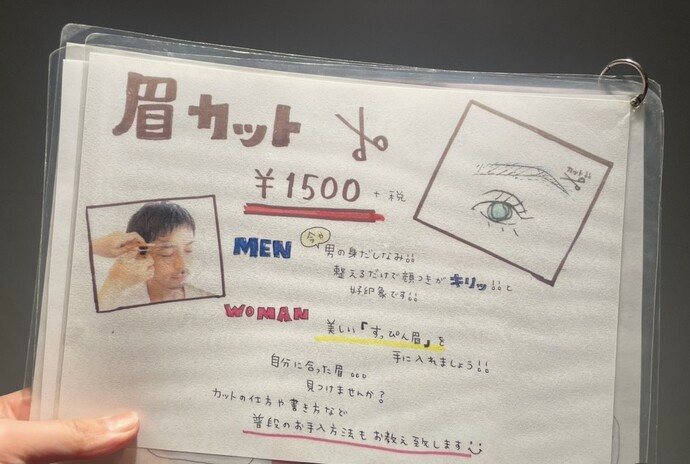 眉カット
¥1500 +税
カット!!
MEN 今や 男の身だしなみ!!
整えるだけで顔つきがキリッ!!と
好印象です!!
WOMAN
美しい「すっぴん眉」を
手に入れましょう!!
自分に合った眉...
見つけませんか?
カットの仕方や書き方など
普段のお手入方法もお教え致します